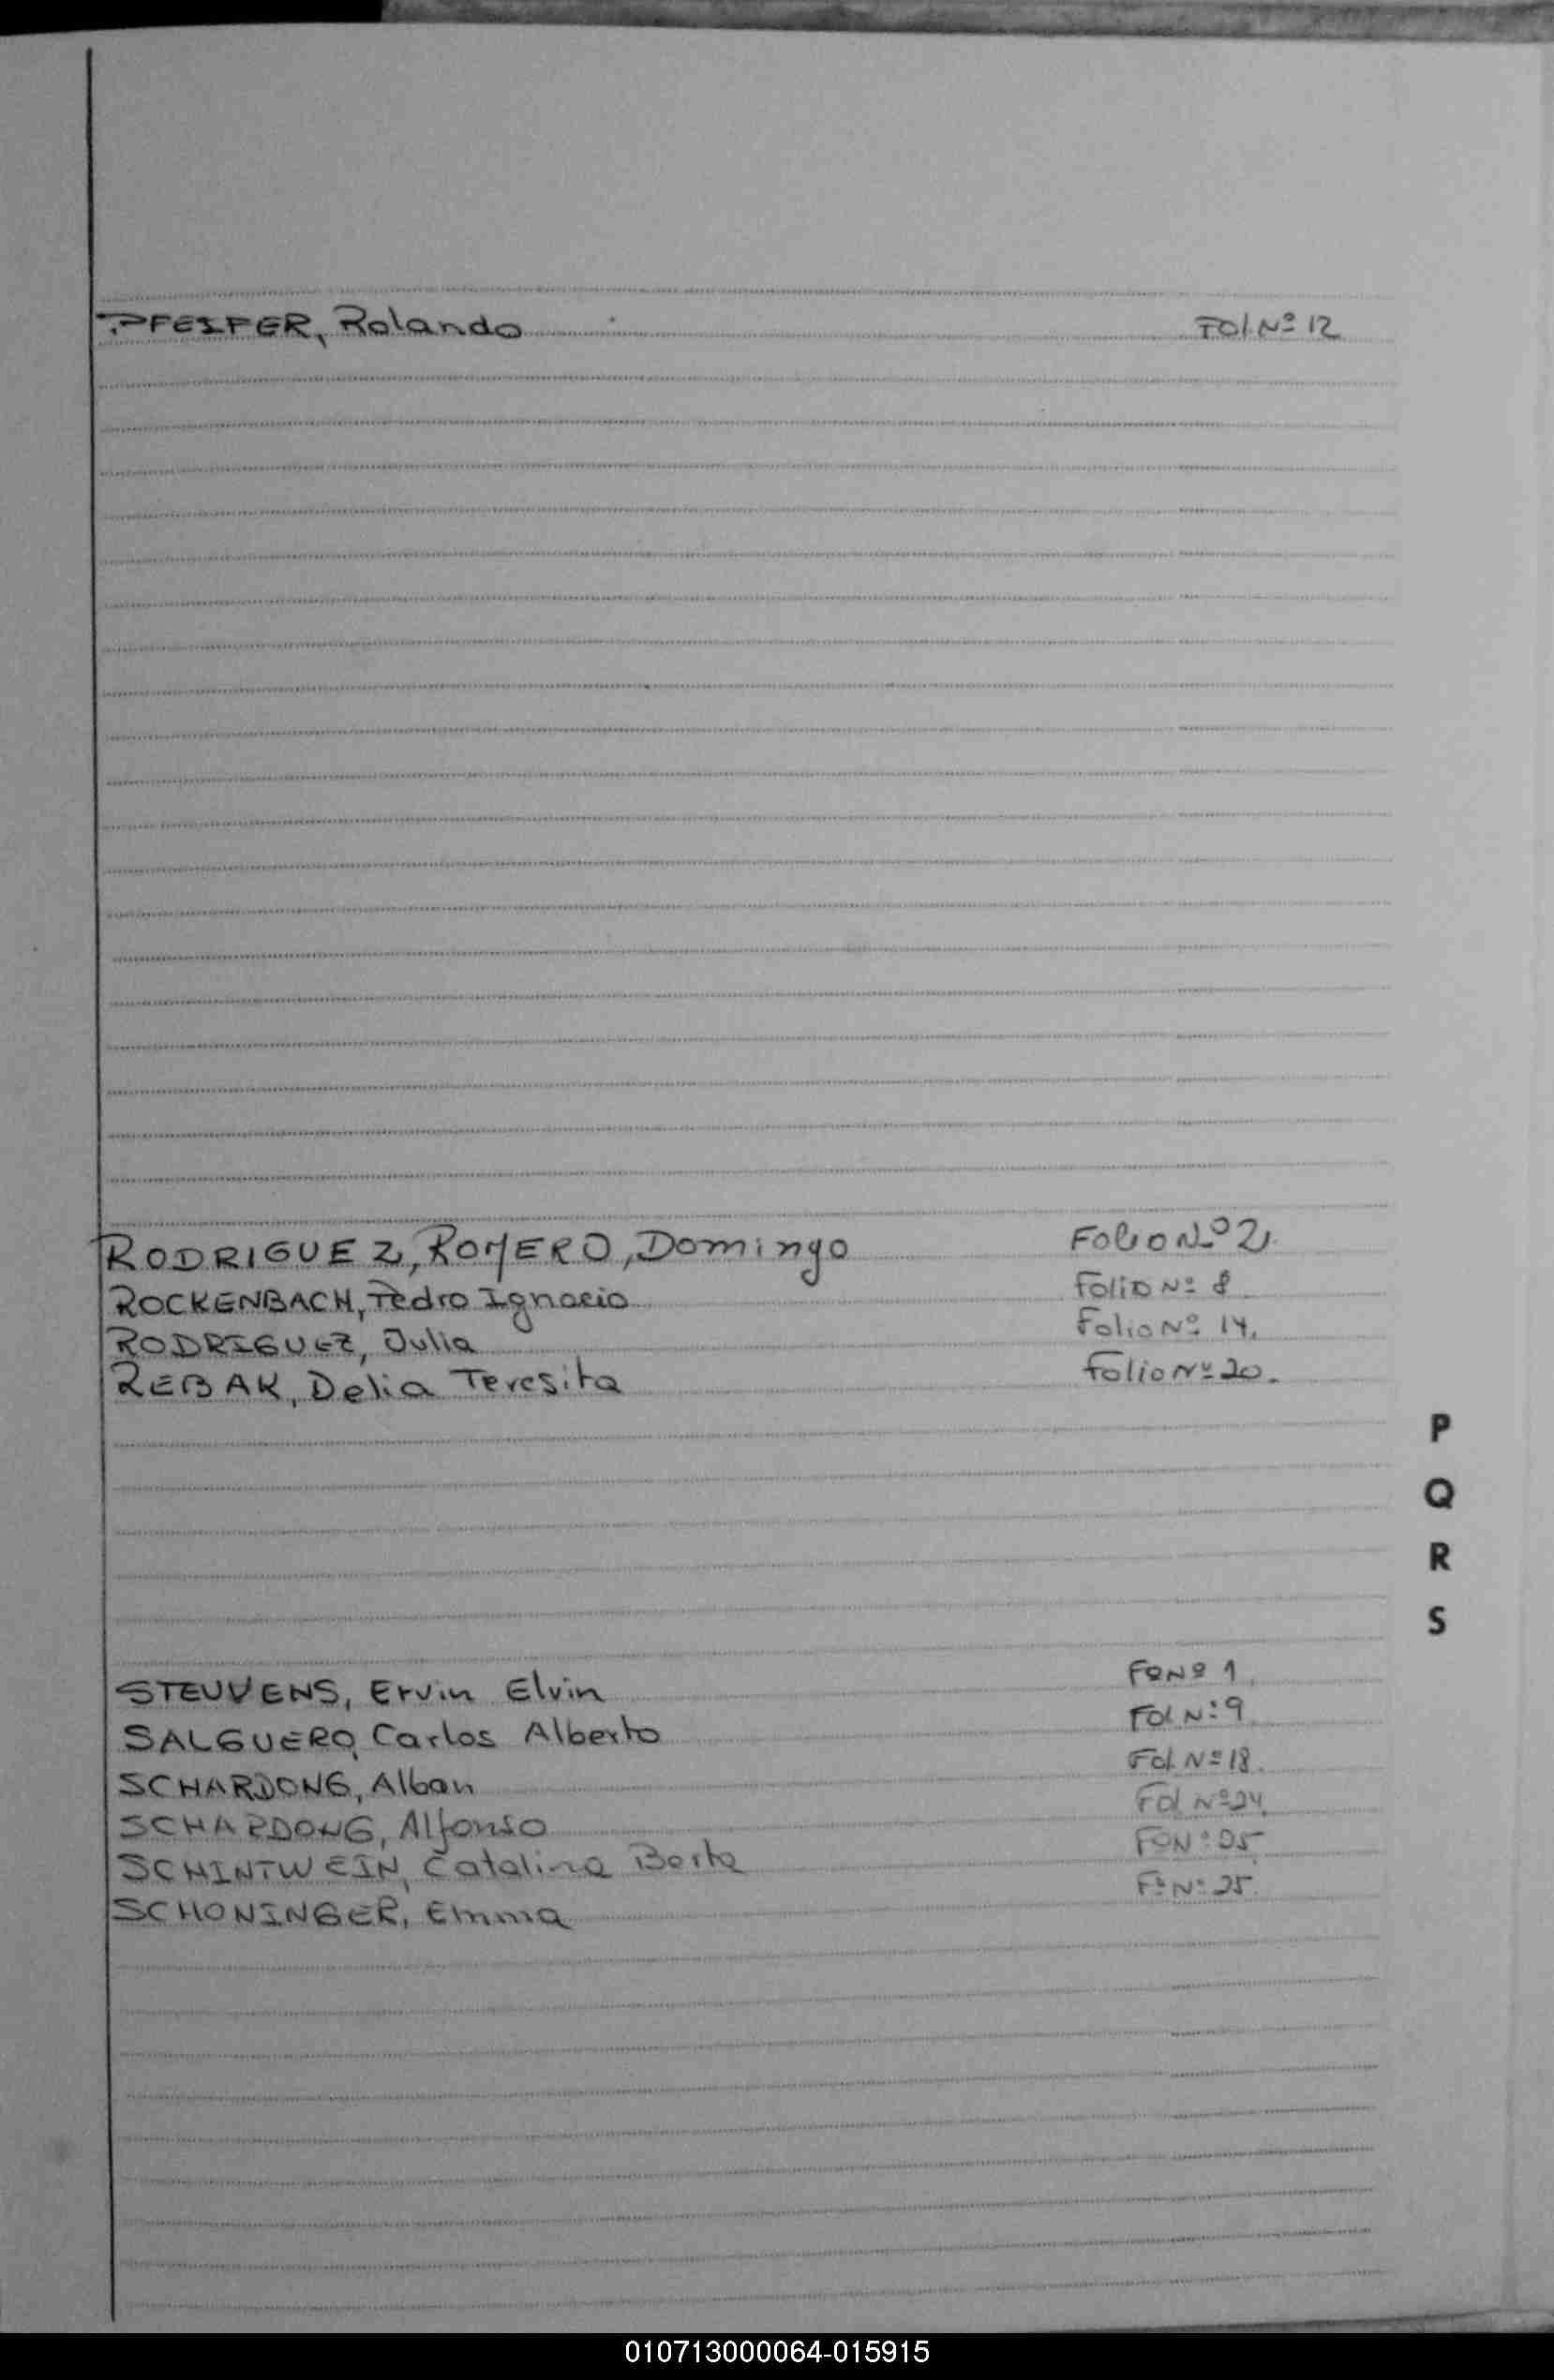 PFEIFER, Rolando Fol. Nº 12
RODRIGUEZ, ROMERO, Domingo Folio Nº 2
ROCKENBACH, Pedro Ignacio Folio Nº 8
RODRIGUEZ, Julia Folio Nº 14.
REBAK, Delia Teresita Folio Nº 20.
P
Q
R
S
STEUVENS, Ervin Elvin Fº Nº 1
SALGUERO, Carlos Alberto Fol Nº 9
SCHARDONG, Alban Fol. Nº 18.
SCHARDONG, Alfonso Fol Nº 24
SCHINTWEIN, Catalina Berta Fº Nº 25
SCHONINGER, Emma Fº Nº 25.
010713000064-015915